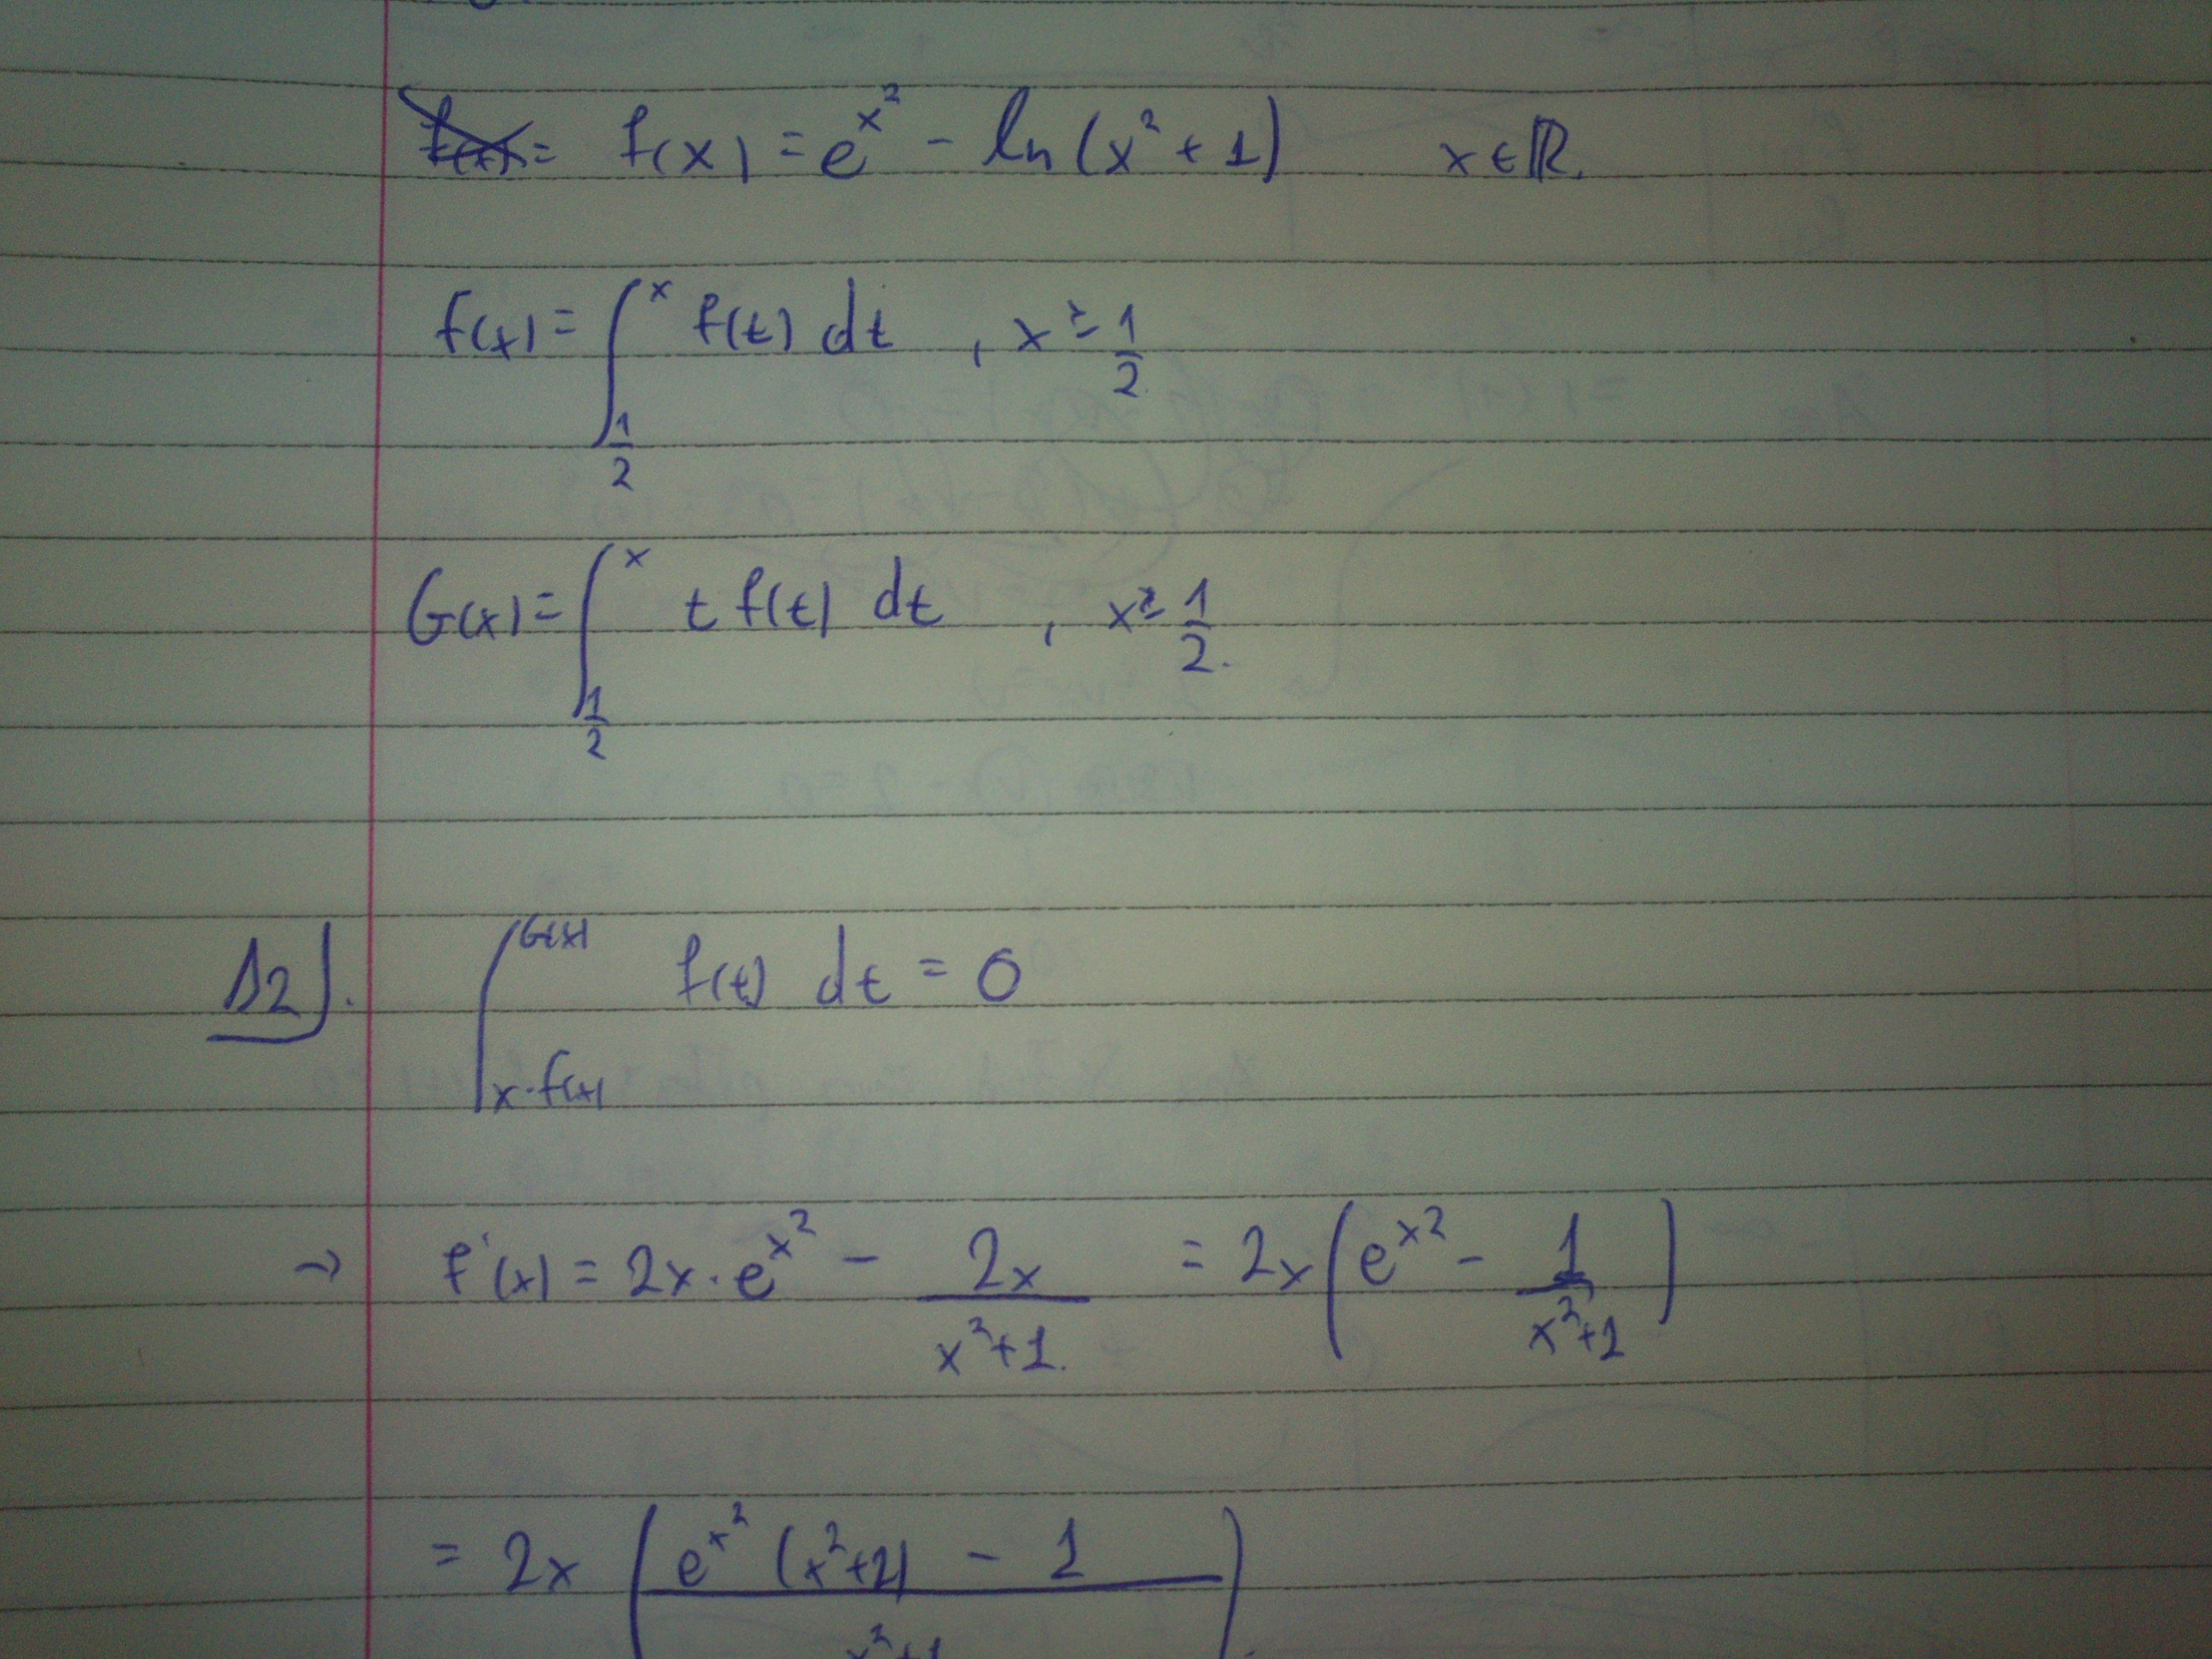 f(x) = e^{x^2} - ln(x^2+1) x ∈ ℝ.
f(x) = ∫_{1/2}^{x} f(t) dt , x ≥ 1/2
G(x) = ∫_{1/2}^{x} t f(t) dt , x ≥ 1/2.
Δ2). ∫_{x·f(x)}^{G(x)} f(t) dt = 0
→ f'(x) = 2x·e^{x^2} - 2x/(x^2+1). = 2x(e^{x^2} - 1/(x^2+1))
= 2x (e^{x^2}(x^2+1) - 1 / x^2+1)